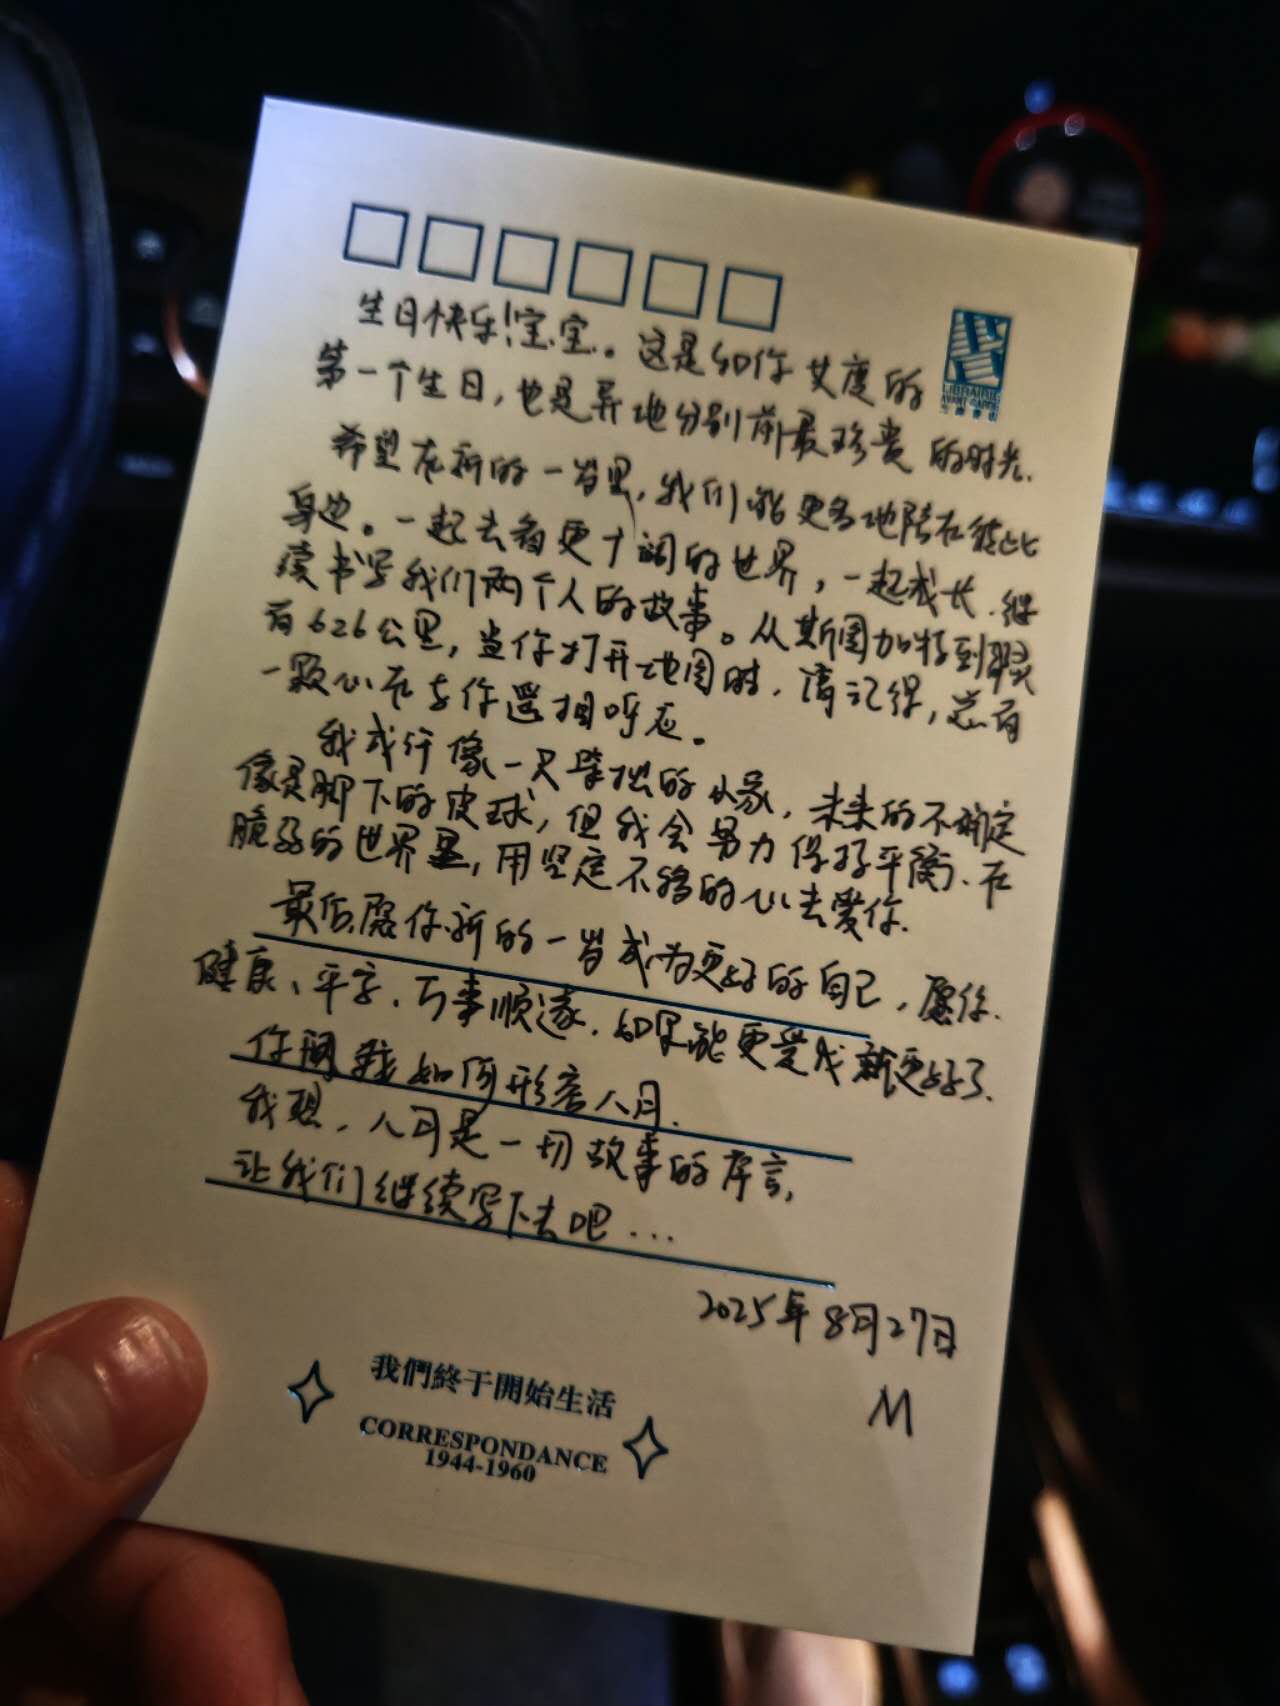 生日快乐!宝宝。这是和你共度的
第一个生日,也是异地分别前最珍贵的时光.
希望在新的一岁里,我们能更多地陪在彼此
身边。一起去看更广阔的世界,一起成长.继
续书写我们两个人的故事。从斯图加特到
有626公里,当你打开地图时,请记得,总有
一颗心在与你遥相呼应。
我或许像一只笨拙的小象,未来的不确定
像是脚下的皮球,但我会努力保持平衡、在
脆弱的世界里,用坚定不移的心去爱你.
最后,愿你新的一岁成为更好的自己,愿你.
健康、平安.万事顺遂.如果能更爱我就更好了.
你问我如何形容八月.
我想,八月是一切故事的序言,
让我们继续写下去吧...
2025年8月27日
M
LIBRAIRIE
AVANT-GARDE
先鋒書店
我們終于開始生活
CORRESPONDANCE
1944-1960